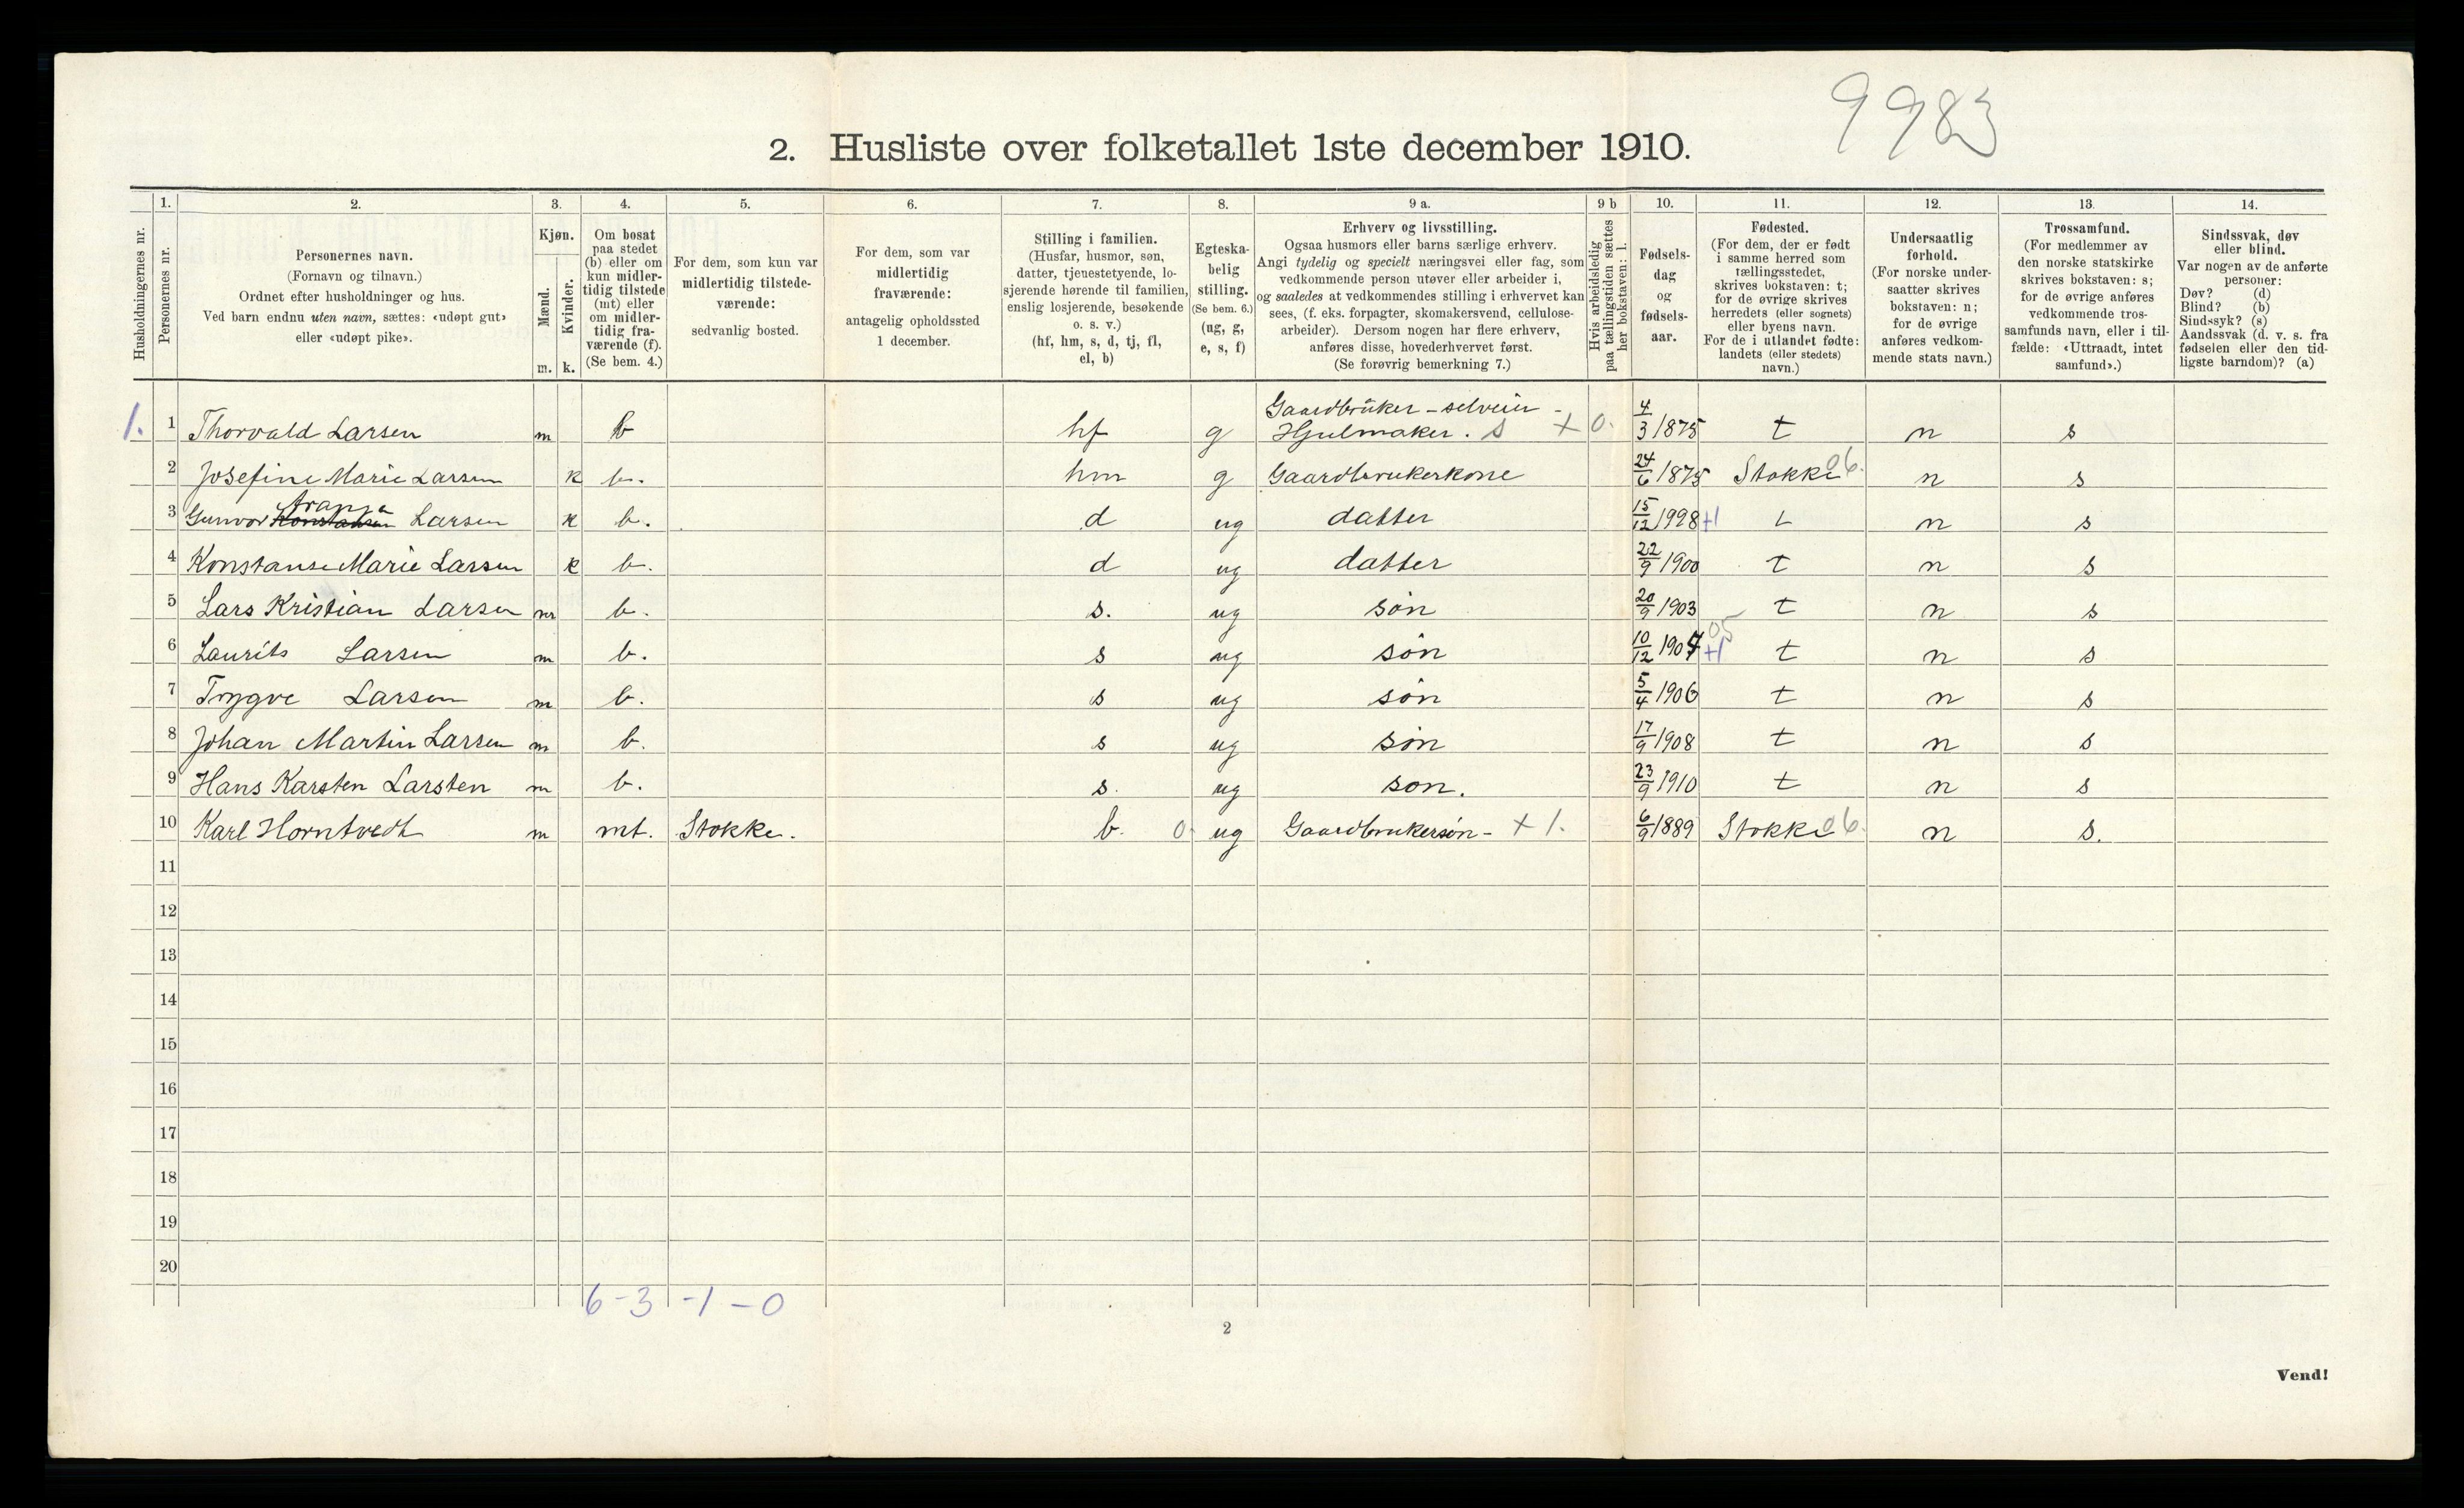 9983
2. Husliste over folketallet 1ste december 1910.
Husholdningernes nr.
1.
Personernes nr.
2.
Personernes navn.
(Fornavn og tilnavn.)
Ordnet efter husholdninger og hus.
Ved barn endnu uten navn, sættes: «udøpt gut»
eller «udøpt pike».
3.
Kjøn.
Mænd.
Kvinder.
m. k.
4.
Om bosat
paa stedet
(b) eller om
kun midler-
tidig tilstede
(mt) eller
om midler-
tidig fra-
værende (f).
(Se bem. 4.)
5.
For dem, som kun var
midlertidig tilstede-
værende:
sedvanlig bosted.
6.
For dem, som var
midlertidig
fraværende:
antagelig opholdssted
1 december.
7.
Stilling i familien.
(Husfar, husmor, søn,
datter, tjenestetyende, lo-
sjerende hørende til familien,
enslig losjerende, besøkende
o. s. v.)
(hf, hm, s, d, tj, fl,
el, b)
8.
Egteska-
belig
stilling.
(Se bem. 6.)
(ug, g,
e, s, f)
9 a.
Erhverv og livsstilling.
Ogsaa husmors eller barns særlige erhverv.
Angi tydelig og specielt næringsvei eller fag, som
vedkommende person utøver eller arbeider i,
og saaledes at vedkommendes stilling i erhvervet kan
sees, (f. eks. forpagter, skomakersvend, cellulose-
arbeider). Dersom nogen har flere erhverv,
anføres disse, hovederhvervet først.
(Se forøvrig bemerkning 7.)
9 b
Hvis arbeidsledig
paa tællingstiden sættes
her bokstaven: l.
10.
Fødsels-
dag
og
fødsels-
aar.
11.
Fødested.
(For dem, der er født
i samme herred som
tællingsstedet,
skrives bokstaven: t;
for de øvrige skrives
herredets (eller sognets)
eller byens navn.
For de i utlandet fødte:
landets (eller stedets)
navn.)
12.
Undersaatlig
forhold.
(For norske under-
saatter skrives
bokstaven: n;
for de øvrige
anføres vedkom-
mende stats navn.)
13.
Trossamfund.
(For medlemmer av
den norske statskirke
skrives bokstaven: s;
for de øvrige anføres
vedkommende tros-
samfunds navn, eller i til-
fælde: «Uttraadt, intet
samfund».)
14.
Sindssvak, døv
eller blind.
Var nogen av de anførte
personer:
Døv? (d)
Blind? (b)
Sindssyk? (s)
Aandssvak (d. v. s. fra
fødselen eller den tid-
ligste barndom)? (a)
Gaardbrüker - selveier -
1. 1 Thorvald Larsen m b hf g Hjulmaker. s + 0. 4/3 1875 t n s
2 Josefine Marie Larsen k b. hm g Gaardbrukerkone 24/6 1875 Stokke 06. n s
3 Gunvor Larsen k b. d ug datter 15/12 1998 +1 t n s
4 Konstanse Marie Larsen k b. d ug datter 22/9 1900 t n s
5 Lars Kristian Larsen m b. s. ug søn 20/9 1903 t n s
6 Laurits Larsen m b. s ug søn 10/12 1904 +1 05 t n s
7 Trygve Larsen m b. s ug søn 5/4 1906 t n s
8 Johan Martin Larsen m b. s ug søn 17/9 1908 t n s
9 Hans Karsten Larsten m b. s. ug søn. 23/9 1910 t n s
10 Karl Horntvedt m mt. Stokke. b. 0 ug Gaardbrukersøn - + 1. 6/9 1889 Stokke 06. n s.
11
12
13
14
15
16
17
18
19
20
6 - 3 - 1 - 0
2
Vend!